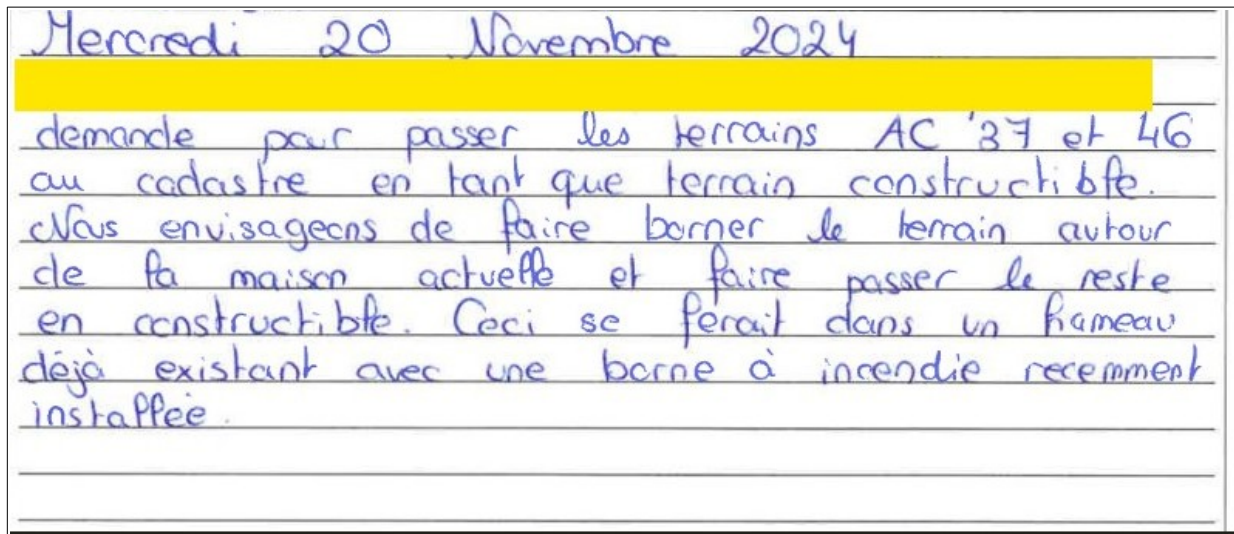 Mercredi 20 Novembre 2024
demande pour passer les terrains AC '37 et 46
au cadastre en tant que terrain constructible.
Nous envisageons de faire borner le terrain autour
de la maison actuelle et faire passer le reste
en constructible. Ceci se ferait dans un hameau
déjà existant avec une borne à incendie recemment
installée.